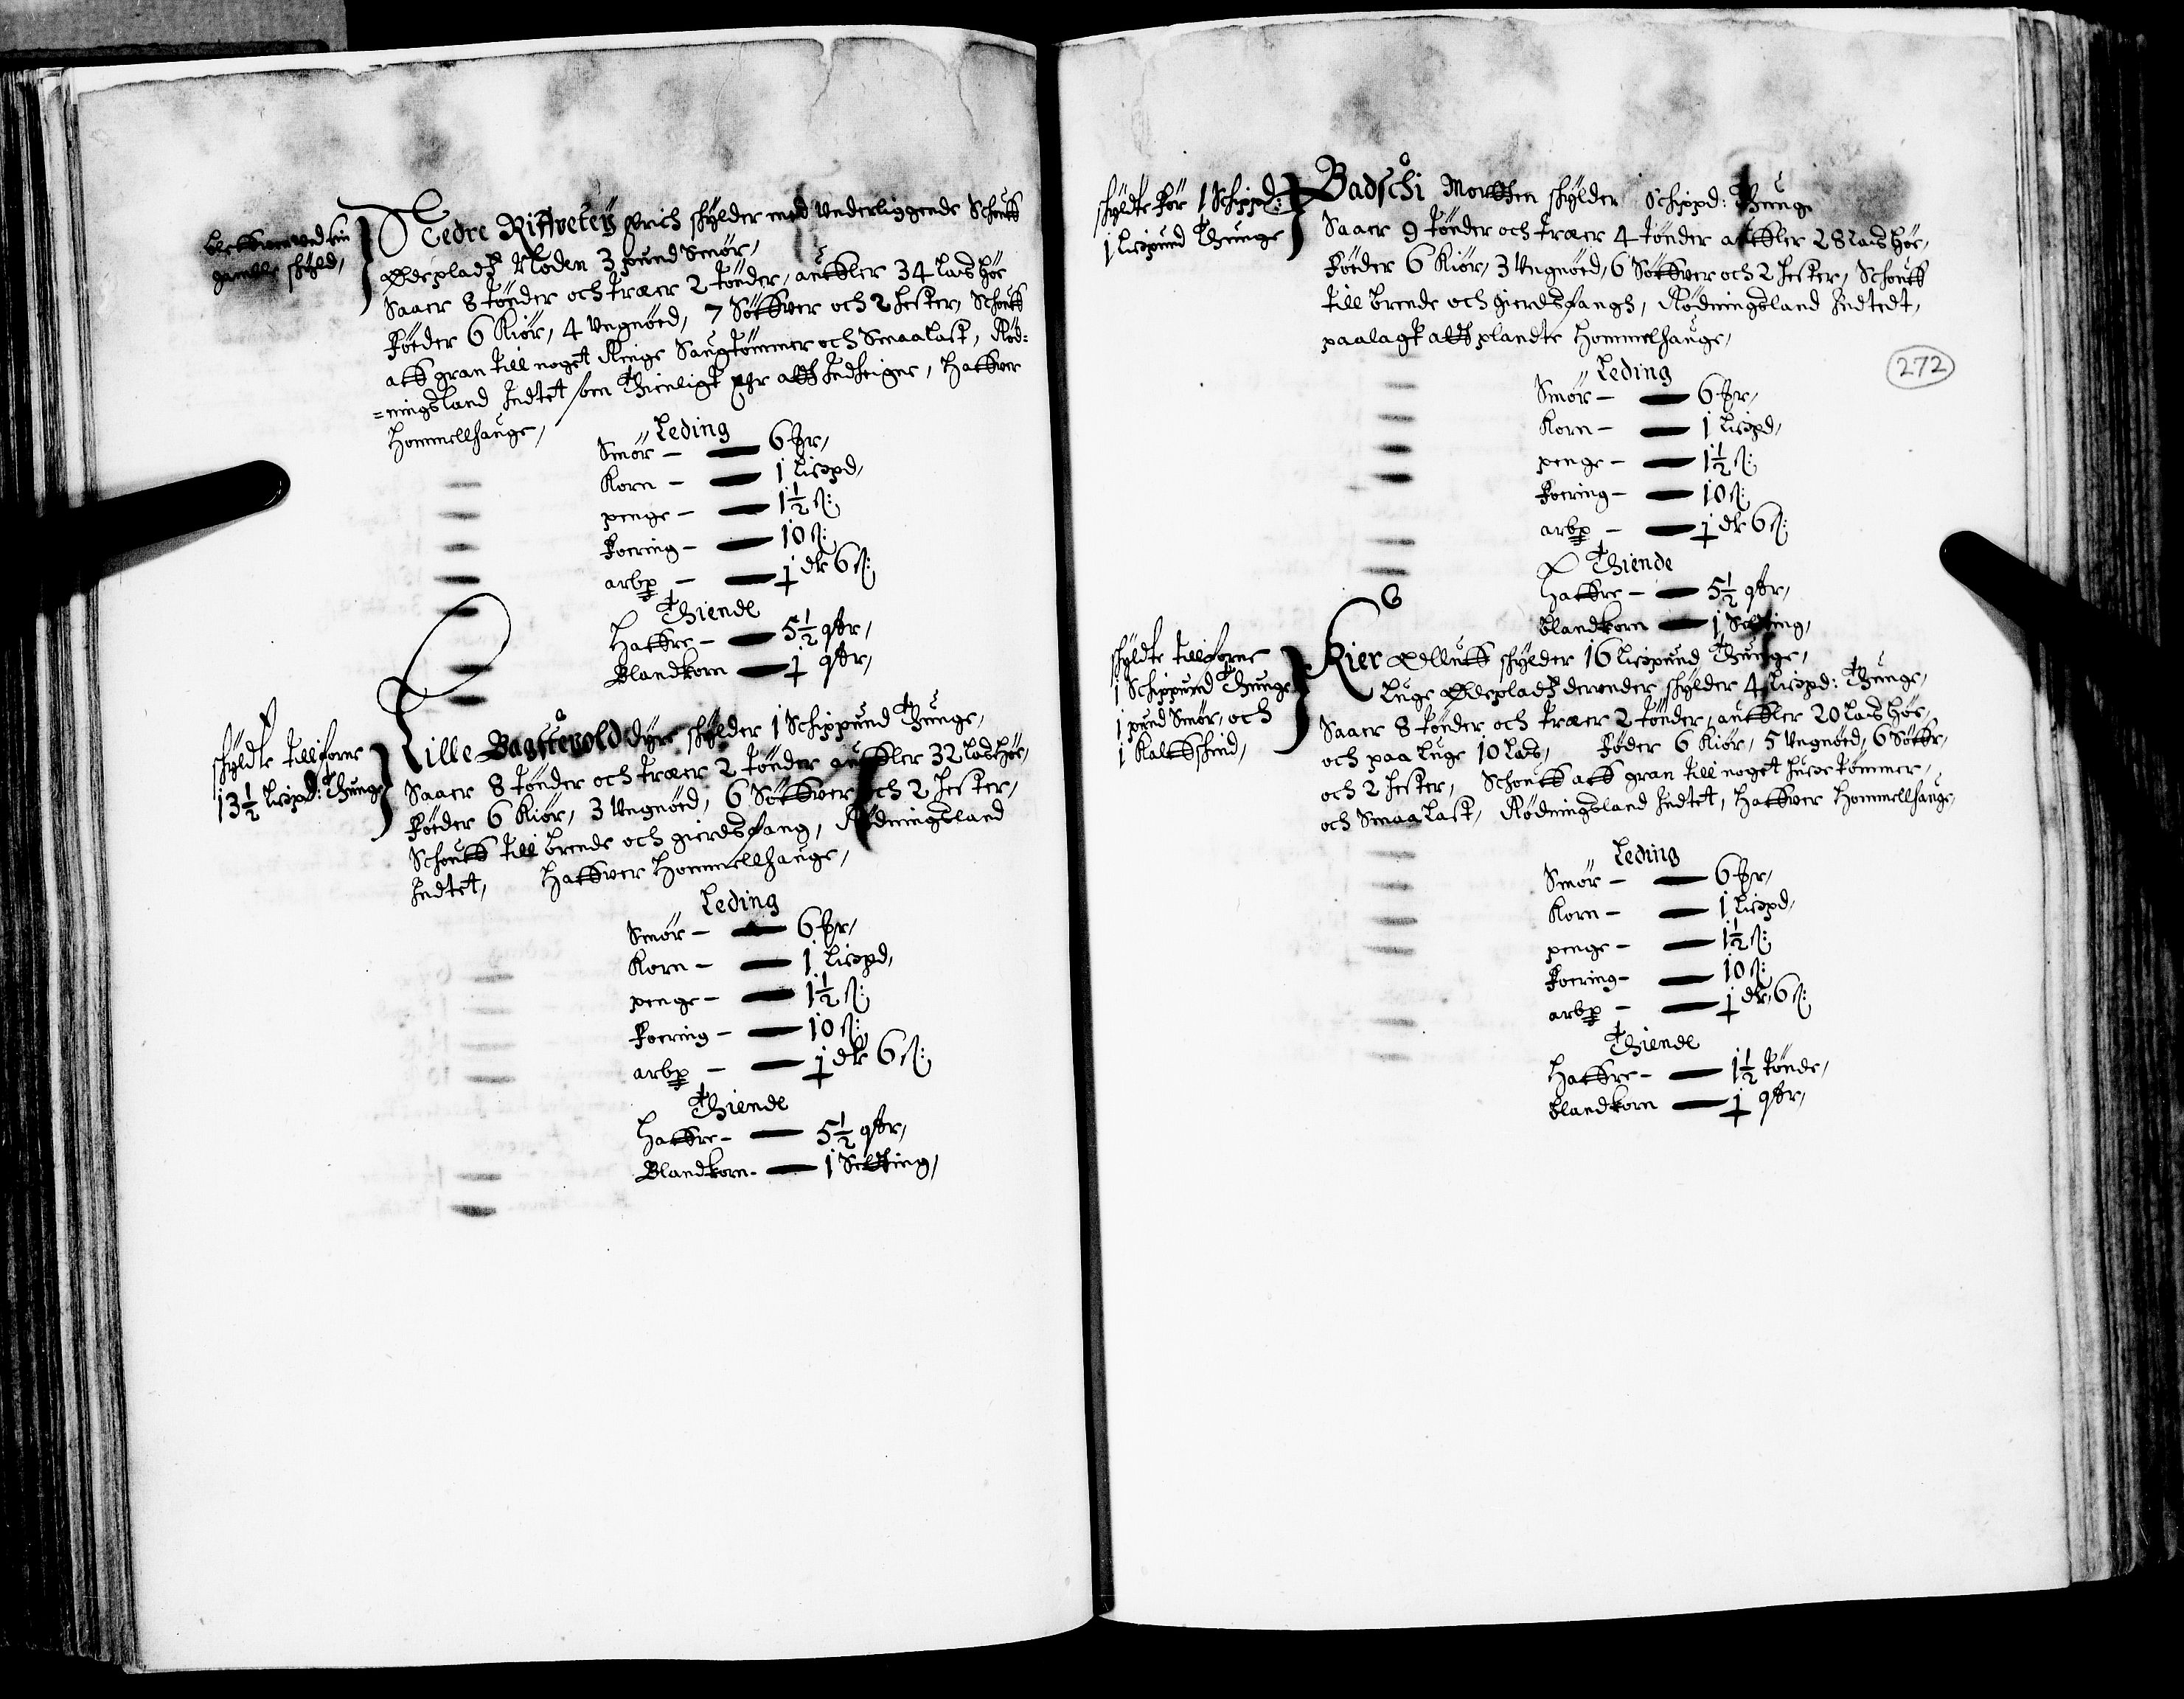 bleffuen ved sin
gamble skyld,
Nedre Riffvetey Erich skylder med Underliggende Schouff
Ødepladtz Moden 3 pund Smør,
Saaer 8 tønder och træer 2 tønder, auffler 34 Lass høe
Føeder 6 Kiør, 4 Ungnøed, 7 Søffuer och 2 hester, Schouff
aff gran till noget Ringe Saugtømmer och Smaalast, Rød-
=ningsland Indtet som thienligt ehr att Indheigne, haffuer
Hommellhauge,
Leding
Smør — 6 mr,
Korn — 1 Lispd,
penge — 1½ s:
Foering — 10 s:
arbp — 1 dr 6 s:
Thiende
Haffre — 5½ qtr,
Blandkorn — 1 qtr,
skyldte tillforne
13½ Lispd: Thunge
Lille Bagstevold dyre skylder 1 Schippund Thunge,
Saaer 8 tønder och træer 2 tønder auffler 32 Lass høe,
Føeder 6 Kiør, 3 Ungnøed, 6 Søffuer och 2 hester,
Schouff till brende och gierdsfang, Rødningsland
Indtet, Haffuer Hommellhauge,
Leding
Smør — 6 mr,
Korn — 1 Lispd,
penge — 1½ s:
Foering — 10 s:
arbp — 1 dr 6 s:
Thiende
Haffre — 5½ qtr,
Blandkorn — 1 Setting,
skyldte før 1 Schippd:
1 Lispund Thunge
Badschi Morthen skylder Schippd: Thunge
Saaer 9 tønder och træer 4 tønder auffler 28 Lass høe,
Føeder 6 Kiør, 3 Ungnøed, 6 Søffuer och 2 hester, Schouff
till brende och gierdsfangh, Rødningsland Indtedt,
paalagt att plandte Hommelhauge,
272
Leding
Smør — 6 mr,
Korn — 1 Lispd,
penge — 1½ s:
Foering — 10 s:
arbp — 1 dr 6 s:
Thiende
Haffre — 5½ qtr,
Blandkorn — 1 Setting,
skyldte tillforne
1 Schippund Thunge
1 pund Smør, och
1 Kalffskind,
Kier Olluff skylder 16 Lispund Thunge,
Luge Ødepladtz derunder skylder 4 Lispd: Thunge,
Saaer 8 tønder och træer 2 tønder, auffler 20 Lass høe,
och paa Luge 10 Lass, Føder 6 Kiør, 5 Ungnøed, 6 Søffr,
och 2 hester, Schouff aff gran till noget huse tømmer,
och Smaa Last, Rødningsland Indtet, Haffuer Hommellhauge,
Leding
Smør — 6 mr,
Korn — 1 Lispd,
penge — 1½ s:
Foering — 10 s:
arbp — 1 dr, 6 s:
Thiende
Haffre — 1½ tønde,
Blandkorn — 1 qtr,